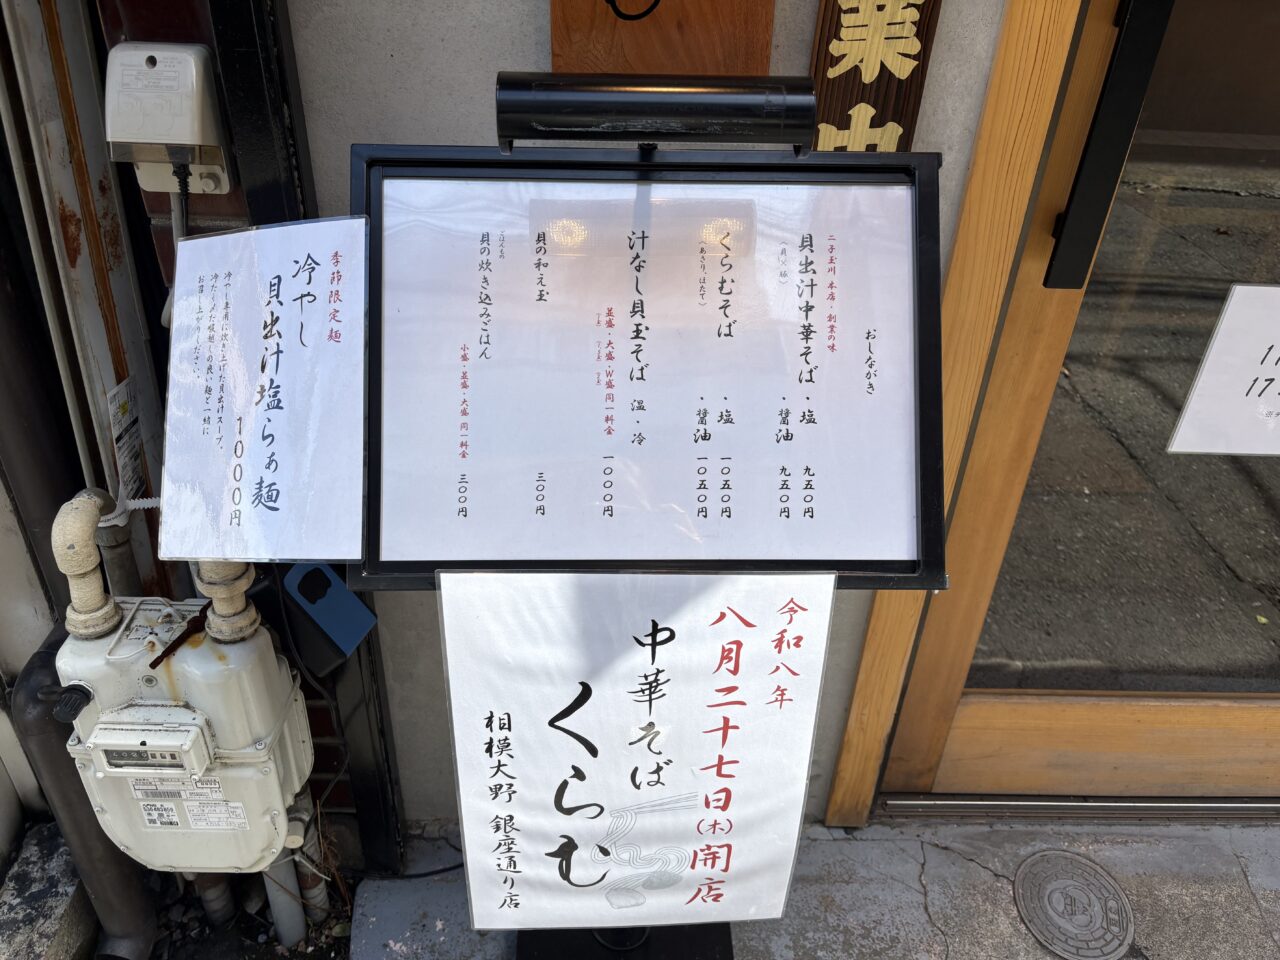 業中
おしながき
二子玉川 本店 創業の味
貝出汁中華そば ・塩 九五〇円
(貝×豚) ・醤油 九五〇円
くらむそば ・塩 一〇五〇円
(あさり、ほたて) ・醤油 一〇五〇円
汁なし貝玉そば 温・冷
並盛・大盛・W盛 同一料金 一〇〇〇円
貝の和え玉 三〇〇円
ごはんもの
貝の炊き込みごはん
小盛・並盛・大盛 同一料金 三〇〇円
季節限定麺
冷やし
貝出汁塩らぁ麺
1000円
冷やし専用に炊き上げた貝出汁スープ、
冷たく〆た喉越しの良い麺と一緒に
お召し上がりください。
令和八年
八月二十七日(木)開店
中華そば
くらむ
相模大野 銀座通り店